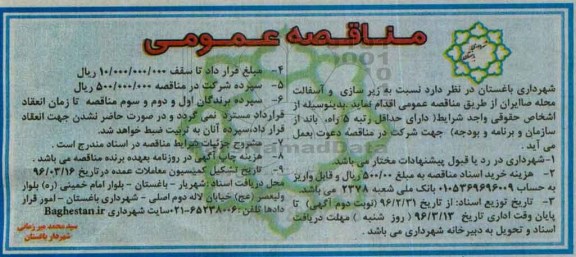 مناقصه عمومی
شهرداری باغستان در نظر دارد نسبت به زیر سازی و آسفالت
محله صاایران از طریق مناقصه عمومی اقدام نماید. بدینوسیله از
اشخاص حقوقی واجد شرایط( دارای حداقل رتبه 5 راه، باند از
سازمان و برنامه و بودجه) جهت شرکت در مناقصه دعوت بعمل
می آید .
1-شهرداری در رد یا قبول پیشنهادات مختار می باشد .
2- هزینه خرید اسناد مناقصه به مبلغ 500/00 ریال و قابل واریز
به حساب 0105369696009 بانک ملی شعبه 2378 می باشد.
3- تاریخ توزیع اسناد: از تاریخ 96/2/31 (نوبت دوم آگهی) تا
پایان وقت اداری تاریخ 96/3/13 ( روز شنبه ) مهلت دریافت
اسناد و تحویل به دبیرخانه شهرداری می باشد .
4- مبلغ قرار داد تا سقف 10/000/000/000 ریال
5- سپرده شرکت در مناقصه 500/000/000 ریال
6- سپرده برندگان اول و دوم و سوم مناقصه تا زمان انعقاد
قرارداد مسترد نمی گردد و در صورت حاضر نشدن جهت انعقاد
قرار داد،سپرده آنان به ترتیب ضبط خواهد شد.
7- شروح جزئیات شرایط مناقصه در اسناد مندرج است .
8- هزینه چاپ آگهی در روزنامه بعهده برنده مناقصه می باشد .
9- تاریخ تشکیل کمیسیون معاملات عمده درتاریخ 96/03/16
محل دریافت اسناد :شهریار - باغستان - بلوار امام خمینی (ره) بلوار
ولیعصر (عج) خیابان لاله دوم اصلی - شهرداری باغستان - امور قرار
دادها تلفن :65238006-021سایت شهرداری Baghestan.ir
سید محمد میرزمانی
شهردار باغستان